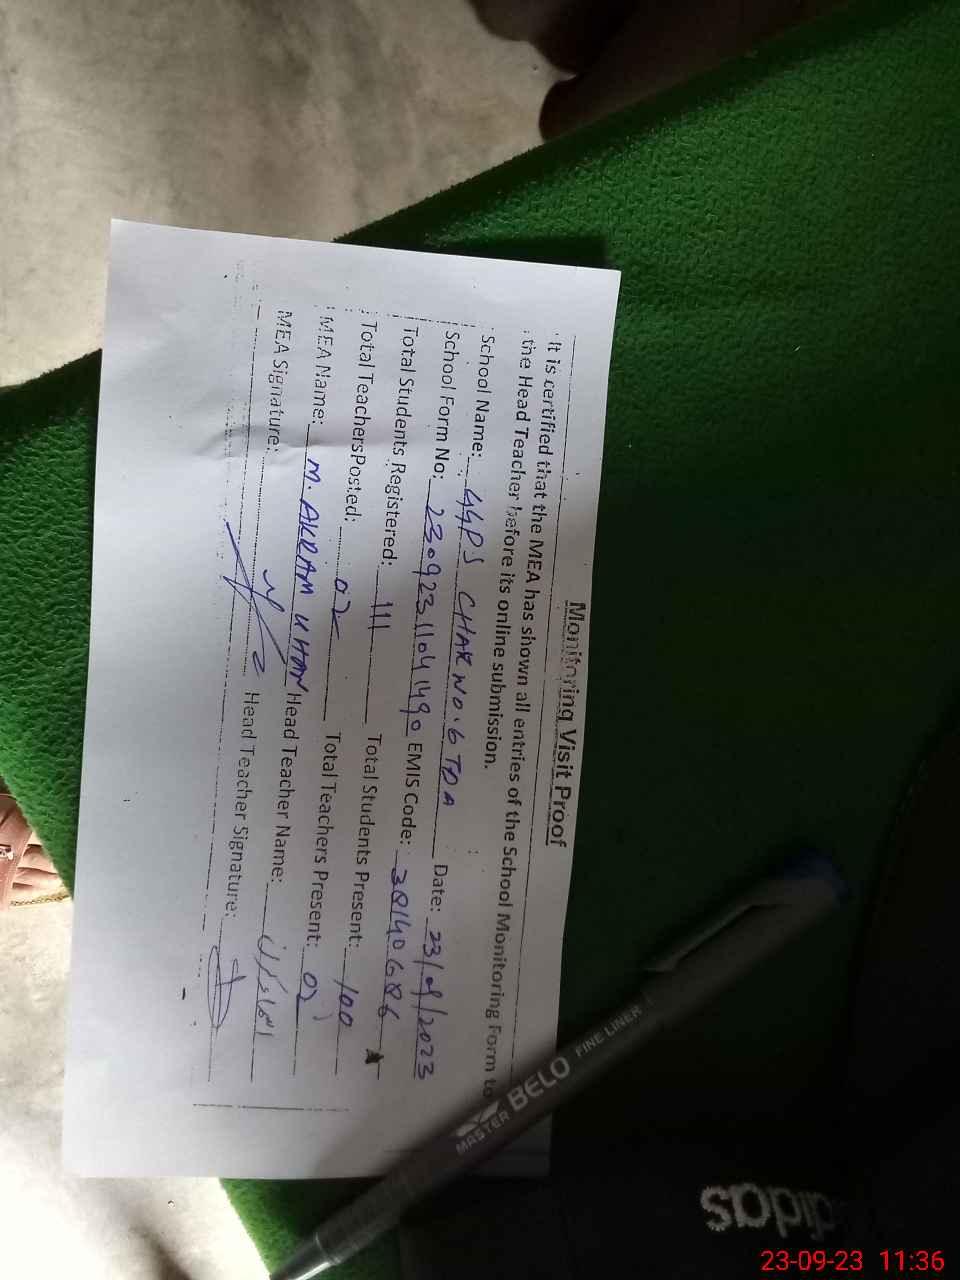 Monitoring Visit Proof
It is certified that the MEA has shown all entries of the School Monitoring Form to
the Head Teacher before its online submission.
School Name: GGPS CHAK NO. 6 TDA Date: 23/09/2023
School Form No: 23092311041490 EMIS Code:
Total Students Registered: 111 Total Students Present: 100
Total TeachersPosted: 02 Total Teachers Present: 02
MEA Name: M. AKRAM KHAN Head Teacher Name:
MEA Signature: Head Teacher Signature:
MASTER BELO FINE LINER
adidas
23-09-23 11:36